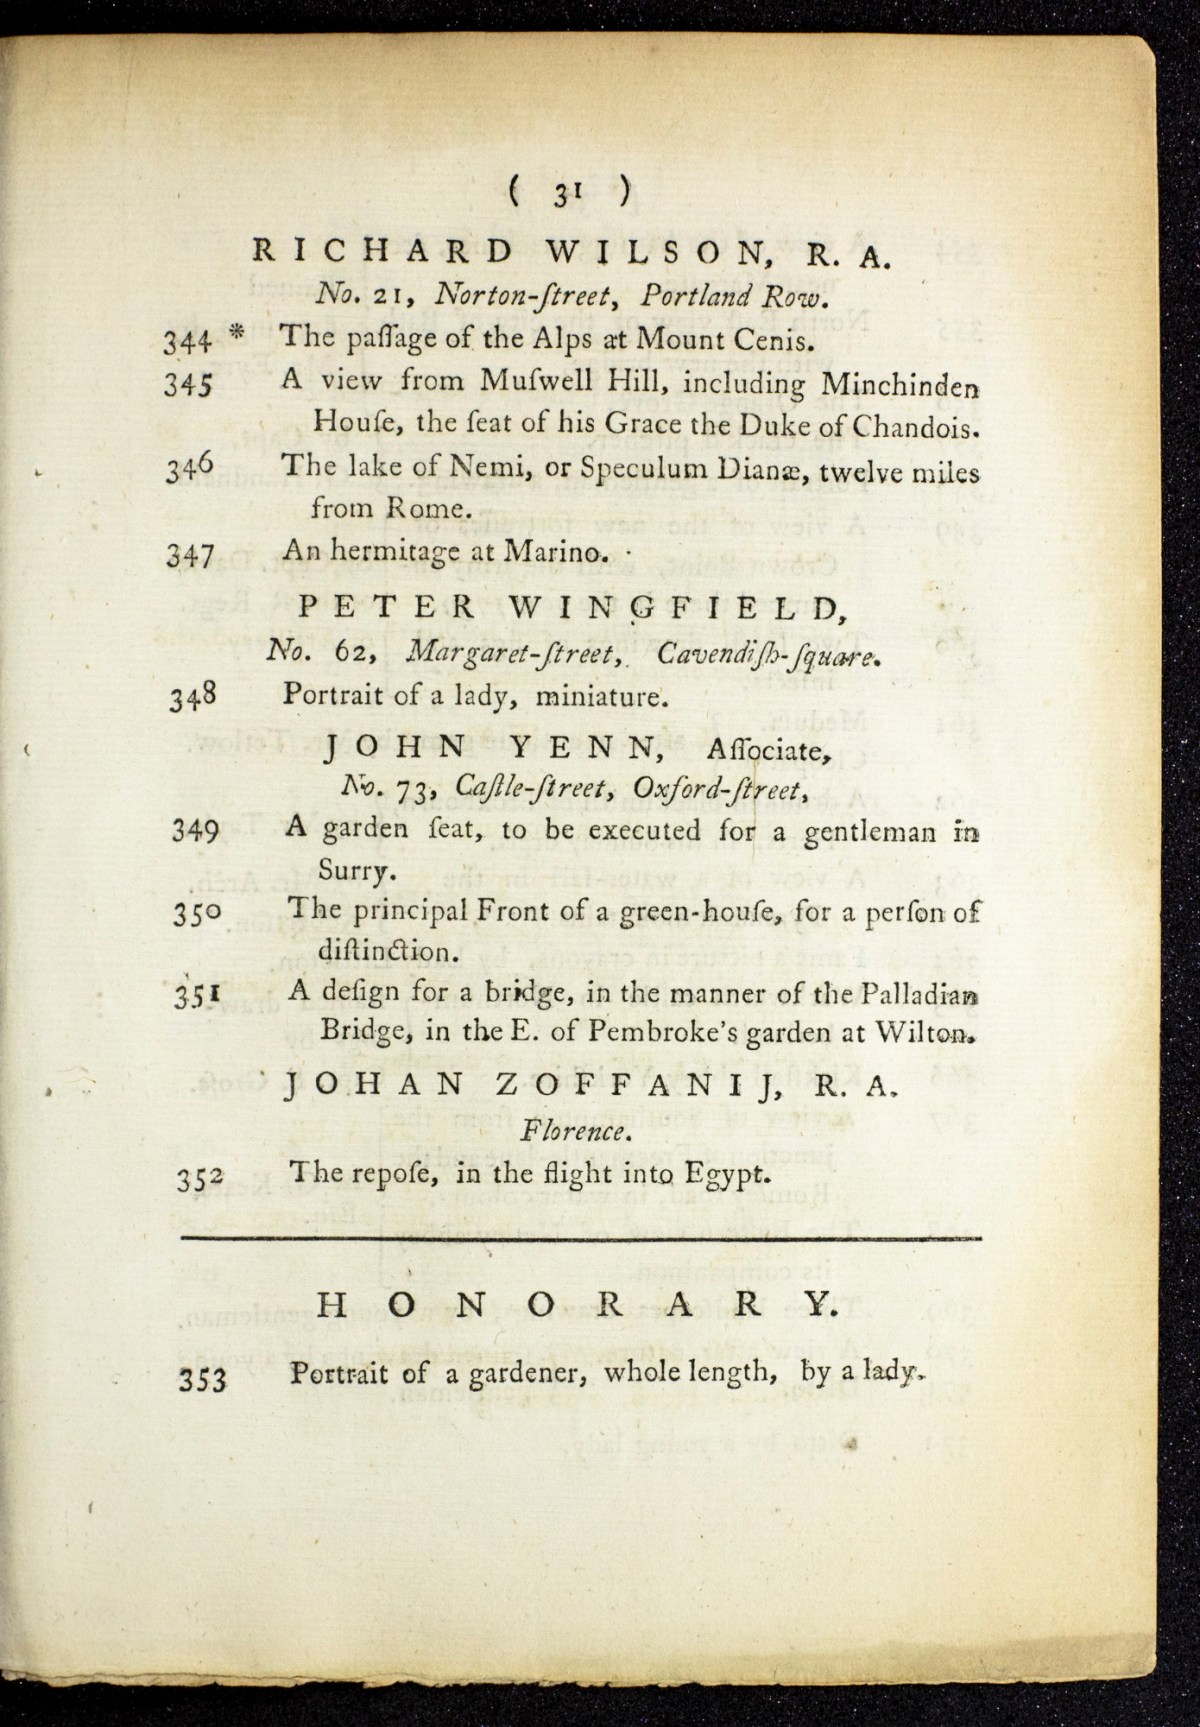 ( 31 )
RICHARD WILSON, R. A.
No. 21, Norton-ſtreet, Portland Row.
344 * The paſſage of the Alps at Mount Cenis.
345 A view from Muſwell Hill, including Minchinden
Houſe, the ſeat of his Grace the Duke of Chandois.
346 The lake of Nemi, or Speculum Dianæ, twelve miles
from Rome.
347 An hermitage at Marino.
PETER WINGFIELD,
No. 62, Margaret-ſtreet, Cavendiſh-ſquare.
348 Portrait of a lady, miniature.
JOHN YENN, Aſſociate,
No. 73, Caſtle-ſtreet, Oxford-ſtreet,
349 A garden ſeat, to be executed for a gentleman in
Surry.
350 The principal Front of a green-houſe, for a perſon of
diſtinction.
351 A deſign for a bridge, in the manner of the Palladian
Bridge, in the E. of Pembroke's garden at Wilton.
JOHAN ZOFFANIJ, R. A.
Florence.
352 The repoſe, in the flight into Egypt.
HONORARY.
353 Portrait of a gardener, whole length, by a lady.